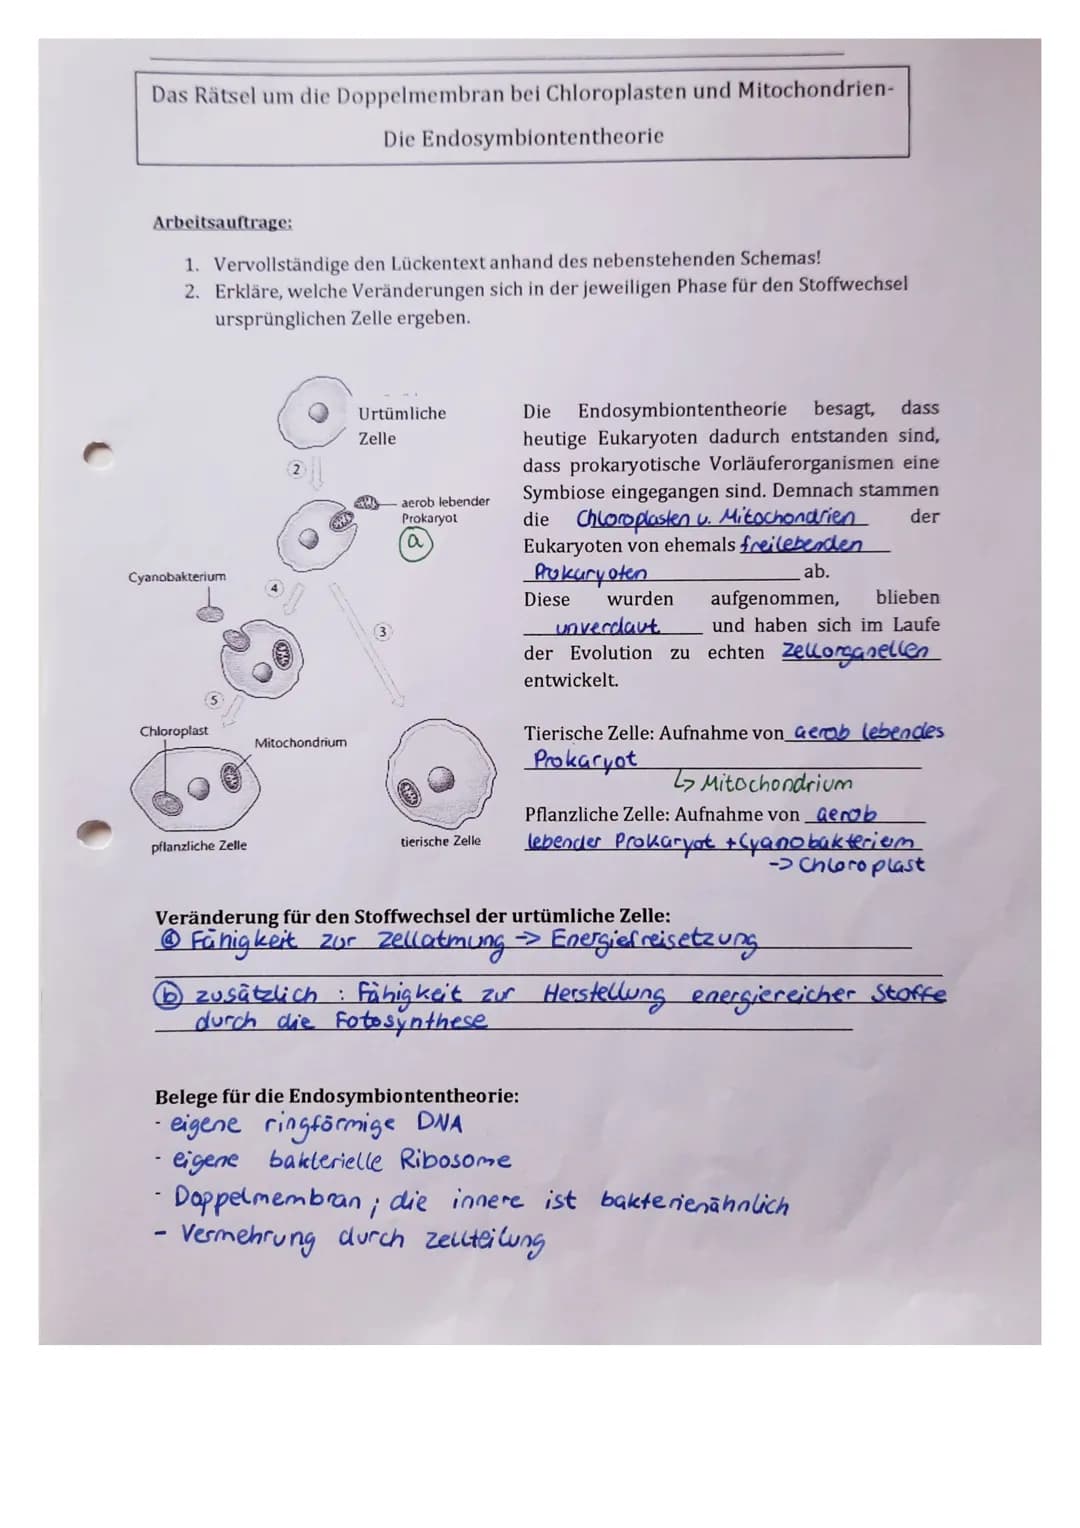 Das Rätsel um die Doppelmembran bei Chloroplasten und Mitochondrien-
Die Endosymbiontentheorie
Arbeitsauftrage:
1. Vervollständige den Lückentext anhand des nebenstehenden Schemas!
2. Erkläre, welche Veränderungen sich in der jeweiligen Phase für den Stoffwechsel
ursprünglichen Zelle ergeben.
Urtümliche
Zelle
2
aerob lebender
Prokaryot
a
Cyanobakterium
4
3
5
Chloroplast
Mitochondrium
pflanzliche Zelle
tierische Zelle
Die Endosymbiontentheorie besagt, dass
heutige Eukaryoten dadurch entstanden sind,
dass prokaryotische Vorläuferorganismen eine
Symbiose eingegangen sind. Demnach stammen
die Chloroplasten u. Mitochondrien der
Eukaryoten von ehemals freilebenden
Prokaryoten ab.
Diese wurden aufgenommen, blieben
unverdaut und haben sich im Laufe
der Evolution zu echten Zellorganellen
entwickelt.
Tierische Zelle: Aufnahme von aerob lebendes
Prokaryot
↳ Mitochondrium
Pflanzliche Zelle: Aufnahme von aerob
lebender Prokaryot + Cyanobakterium
-> Chloroplast
Veränderung für den Stoffwechsel der urtümliche Zelle:
ⓐ Fähigkeit zur Zellatmung -> Energiefreisetzung
ⓑ zusätzlich : Fähigkeit zur Herstellung energiereicher Stoffe
durch die Fotosynthese
Belege für die Endosymbiontentheorie:
- eigene ringförmige DNA
- eigene bakterielle Ribosome
- Doppelmembran ; die innere ist bakterienähnlich
- Vermehrung durch Zellteilung